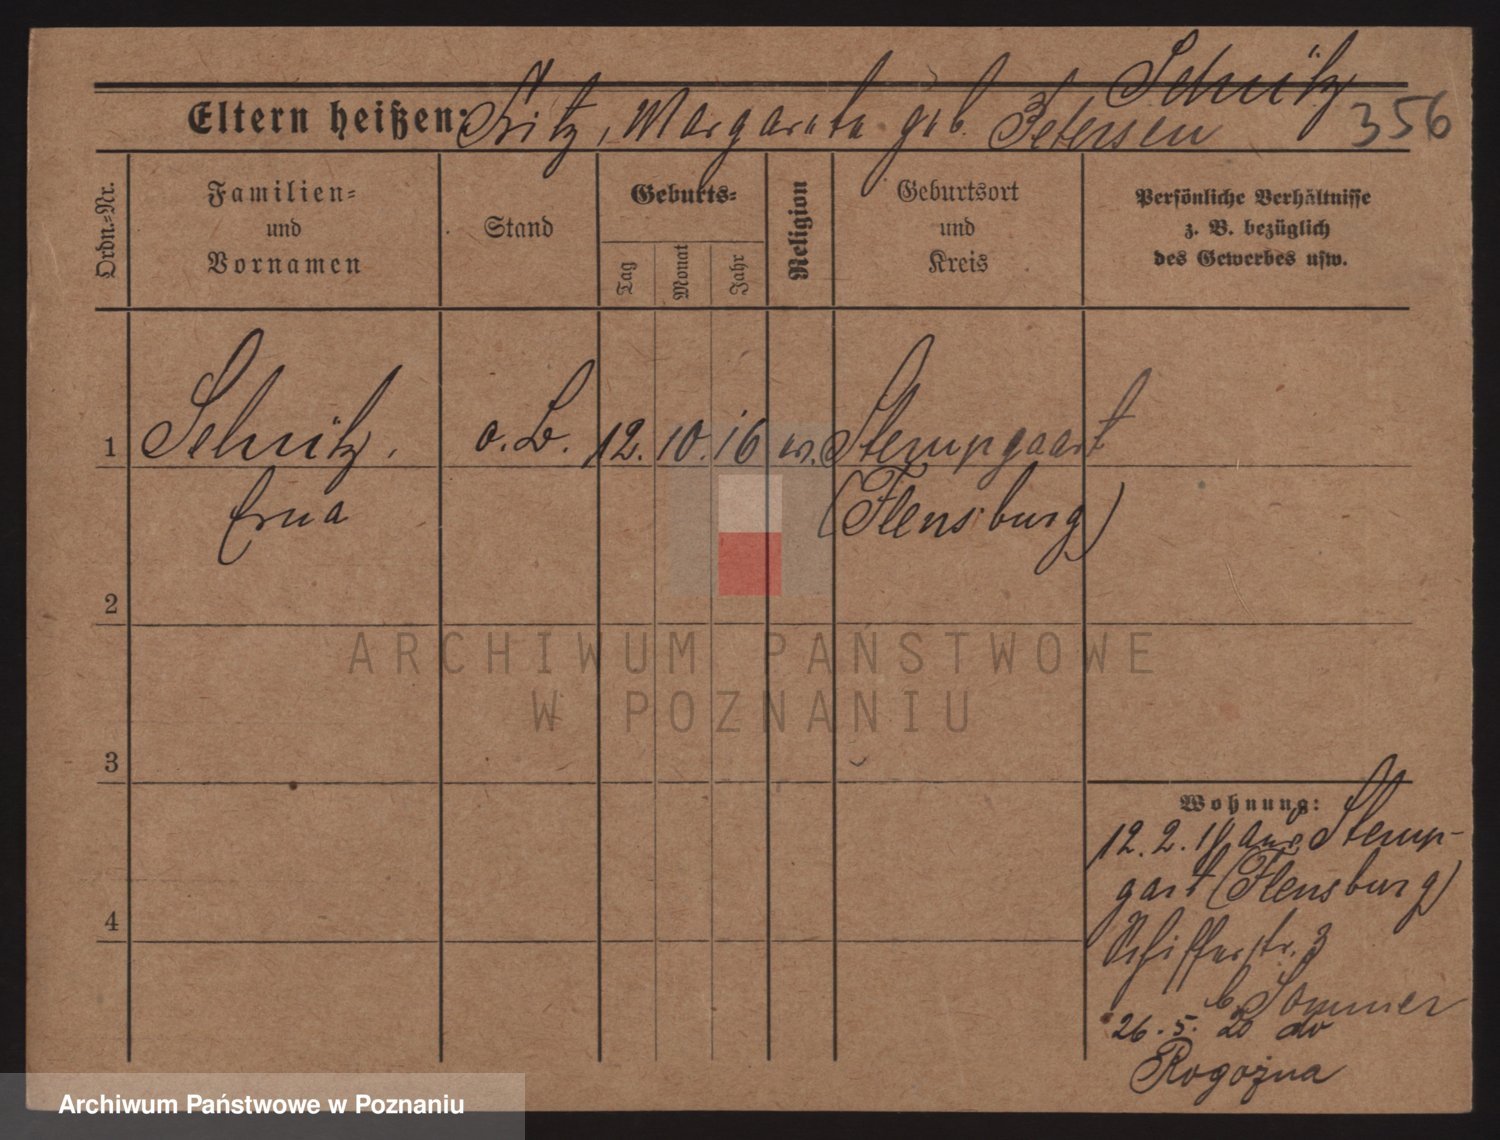 Schütz
Eltern heißen: Fritz, Margareta geb. Petersen
356
Ordn.-Nr.
Familien-
und
Vornamen
Stand
Geburts-
Tag
Monat
Jahr
Religion
Geburtsort
und
Kreis
Persönliche Verhältnisse
z. B. bezüglich
des Gewerbes usw.
1 Schütz, o. B. 12. 10. 16 ev. Stempgaart
Erna (Flensburg)
2
ARCHIWUM PAŃSTWOWE
W POZNANIU
3
Wohnung:
12. 2. 19 aus Stemp-
gart (Flensburg)
4
Schifferstr. 3
b. Sommer
26. 5. 20 do
Rogoźna
Archiwum Państwowe w Poznaniu